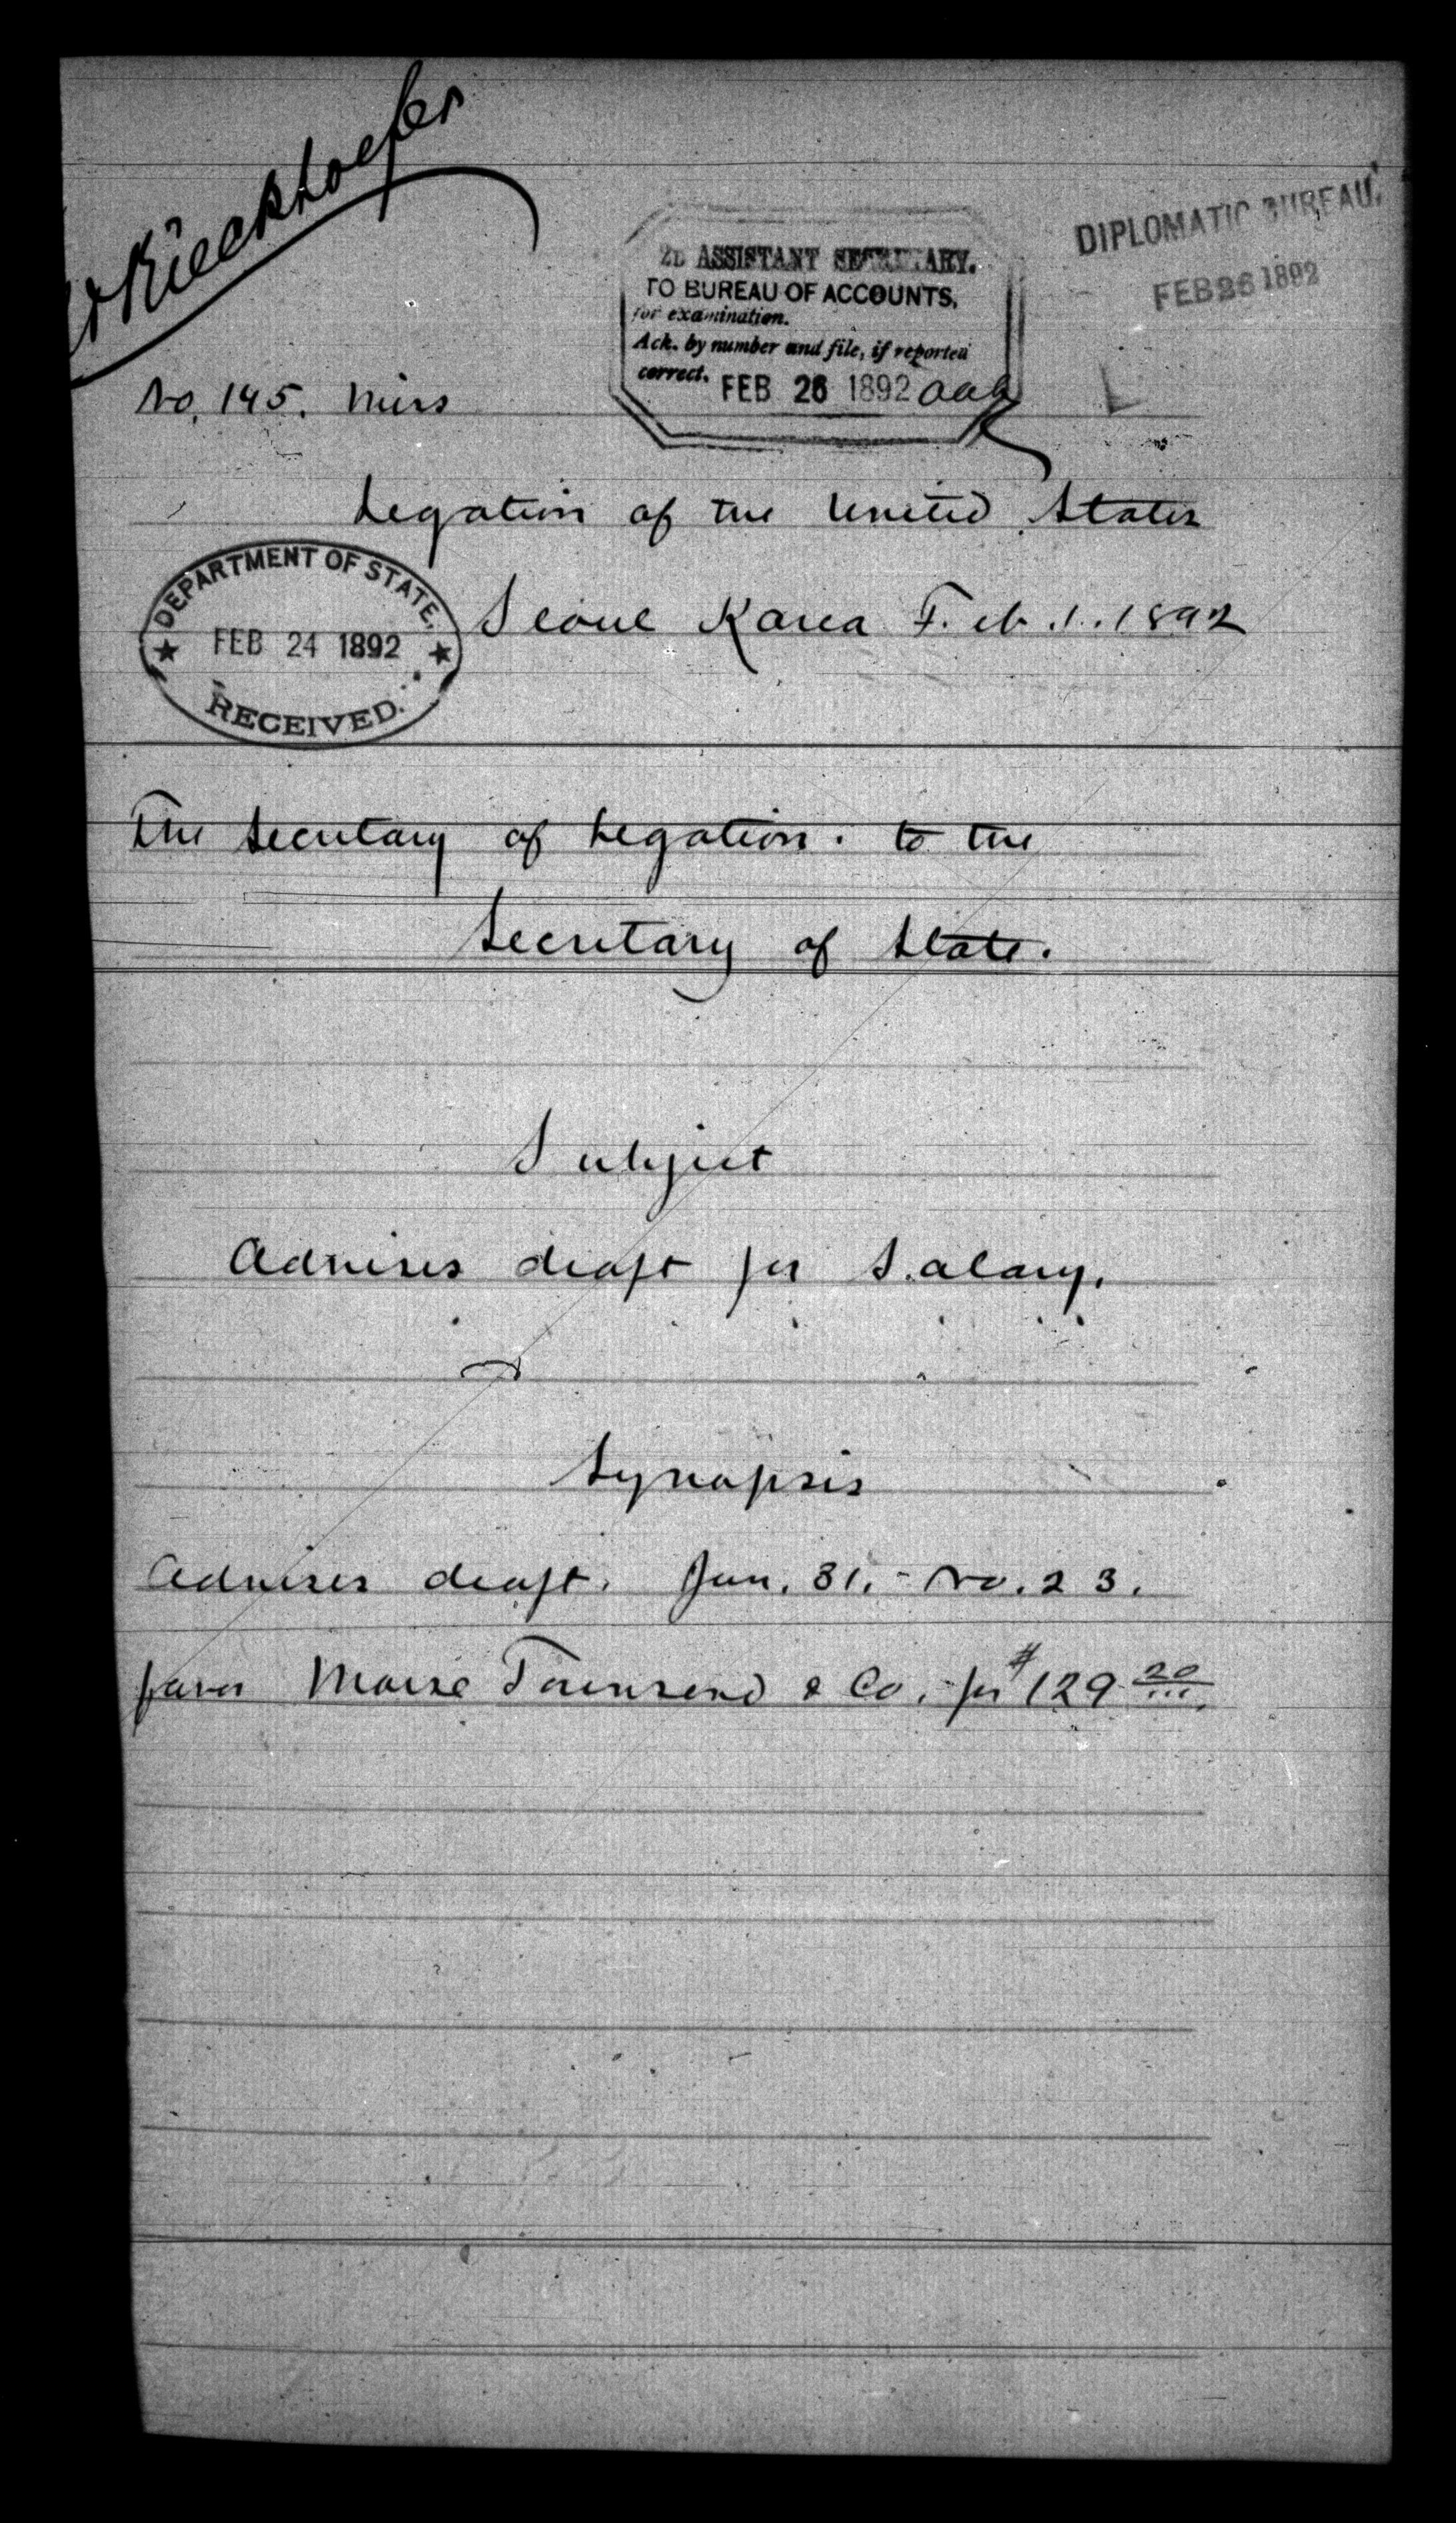 Kieckhoefer
DIPLOMATIC BUREAU.
FEB 26 1892
2D ASSISTANT SECRETARY.
TO BUREAU OF ACCOUNTS,
for examination.
Ack. by number and file, if reported
correct. FEB 26 1892 aaa
No. 145.
Legation of the United States
DEPARTMENT OF STATE.
FEB 24 1892
RECEIVED.
Seoul Korea Feb. 1. 1892
The Secretary of Legation. to the
Secretary of State.
Subject
Advises draft for Salary.
Synopsis
Advises draft. Jan. 31. - No. 23.
favor Morse Townsend & Co. for $129 20/...